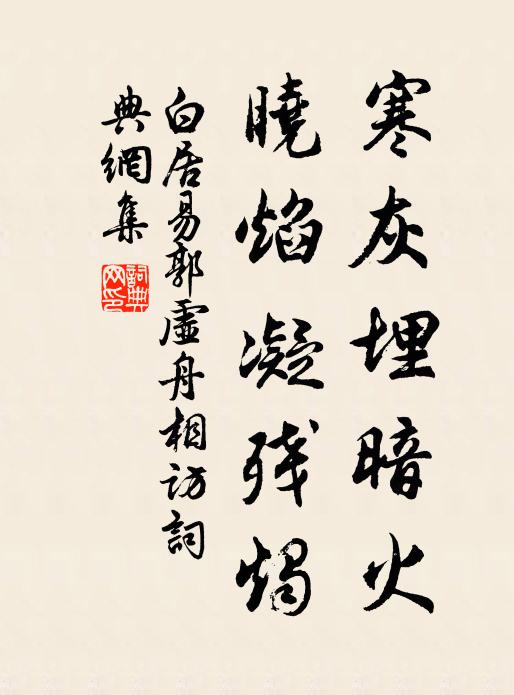 寒灰埋暗火
曉焰凝残燭
白居易郭虛舟相访詞
典網集
詞典
网印